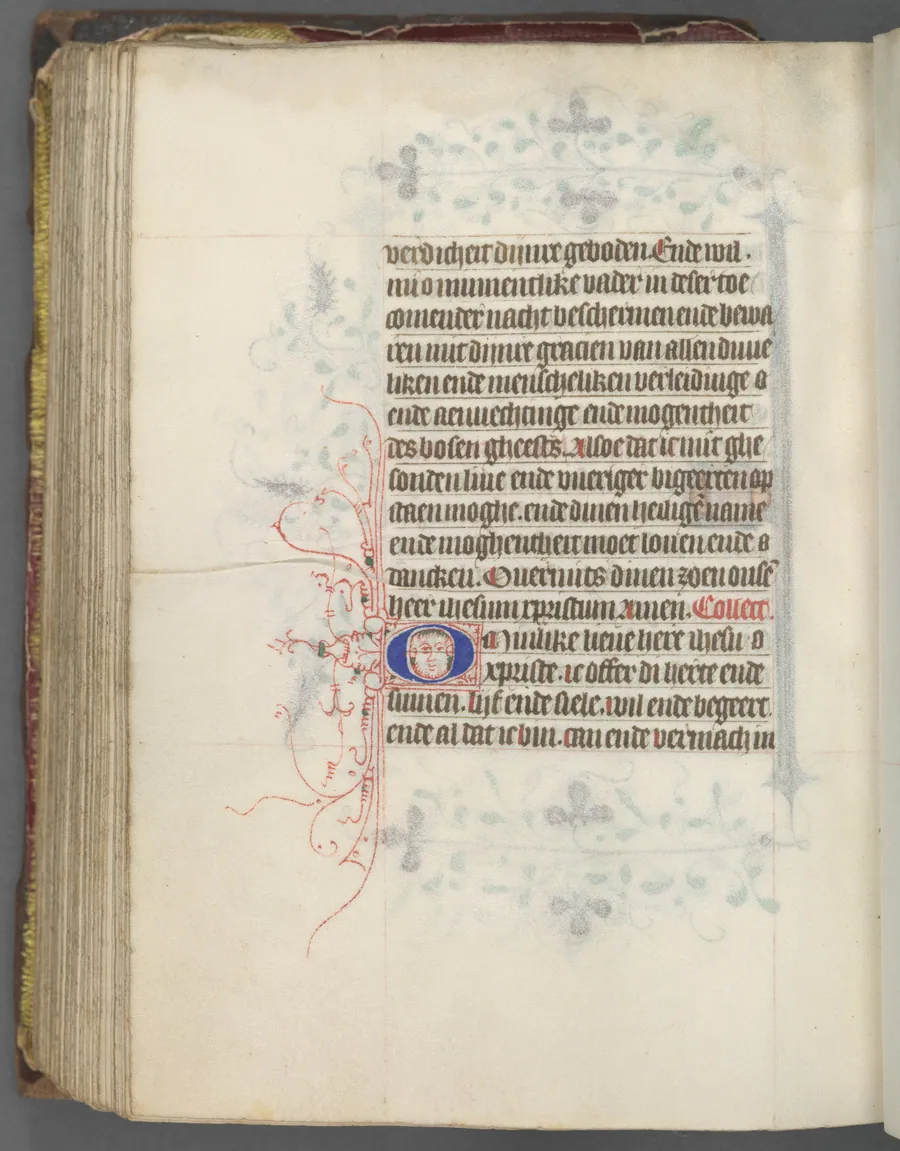 verdicheit dijnre geboden. Ende wil.
mi omnimentlike vader in deser toe
comender nacht beschermen ende bewa
ren mit dijnre gracien van allen duue
liken ende menscheliken verleidinge
ende aenuechtinge ende mogentheit
des bosen gheests. Alsoe dat ic mit ghe
sonden liue ende vueriger begeerten op
staen moghe. ende dinen heiligen name
ende moghentheit moet louen ende
dancken. Ouermits dinen zoen onsen
heer ihesum xpristum Amen. Collect.
O Mijnlike lieue here ihesu
xpriste. ic offer di herte ende
sinnen. lijf ende siele. wil ende begeert.
ende al dat ic bin. can ende vermach in